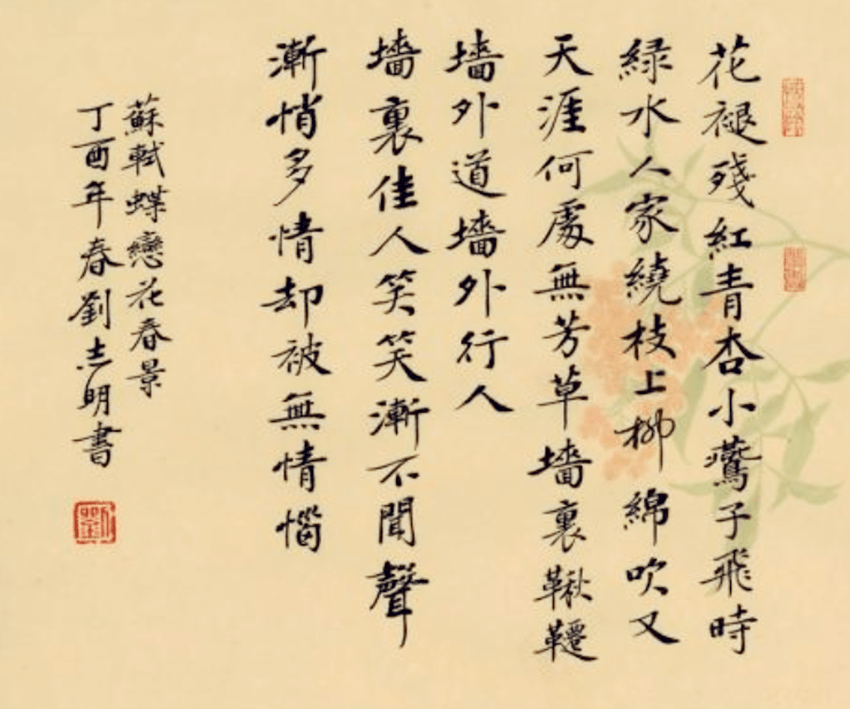 花褪殘紅青杏小鷰子飛時
緑水人家繞枝上柳綿吹又
天涯何處無芳草墻裏鞦韆
墻外道墻外行人
墻裏佳人笑笑漸不聞聲
漸悄多情却被無情惱
蘇軾蝶戀花春景
丁酉年春劉志明書
劉